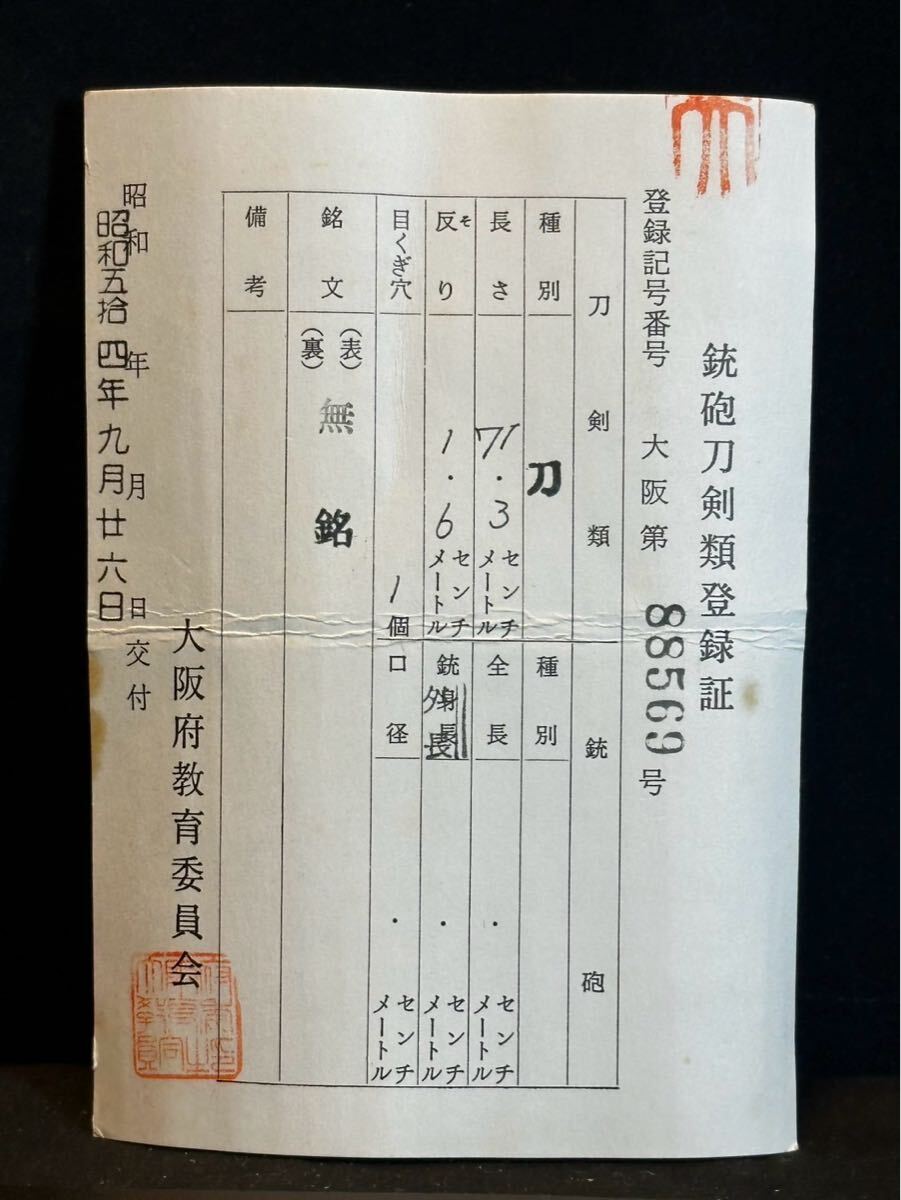 銃砲刀剣類登録証
登録記号番号 大阪第 88569 号
刀剣類
種別 刀
長さ 71.3 センチメートル
反り そ 1.6 センチメートル
目くぎ穴 1 個
銘文 (表) (裏) 無銘
備考
銃砲
種別
全長 ・ センチメートル
銃身長 外長 ・ センチメートル
口径 ・ センチメートル
昭和 年 月 日交付
昭和五拾四年九月廿六日
大阪府教育委員会